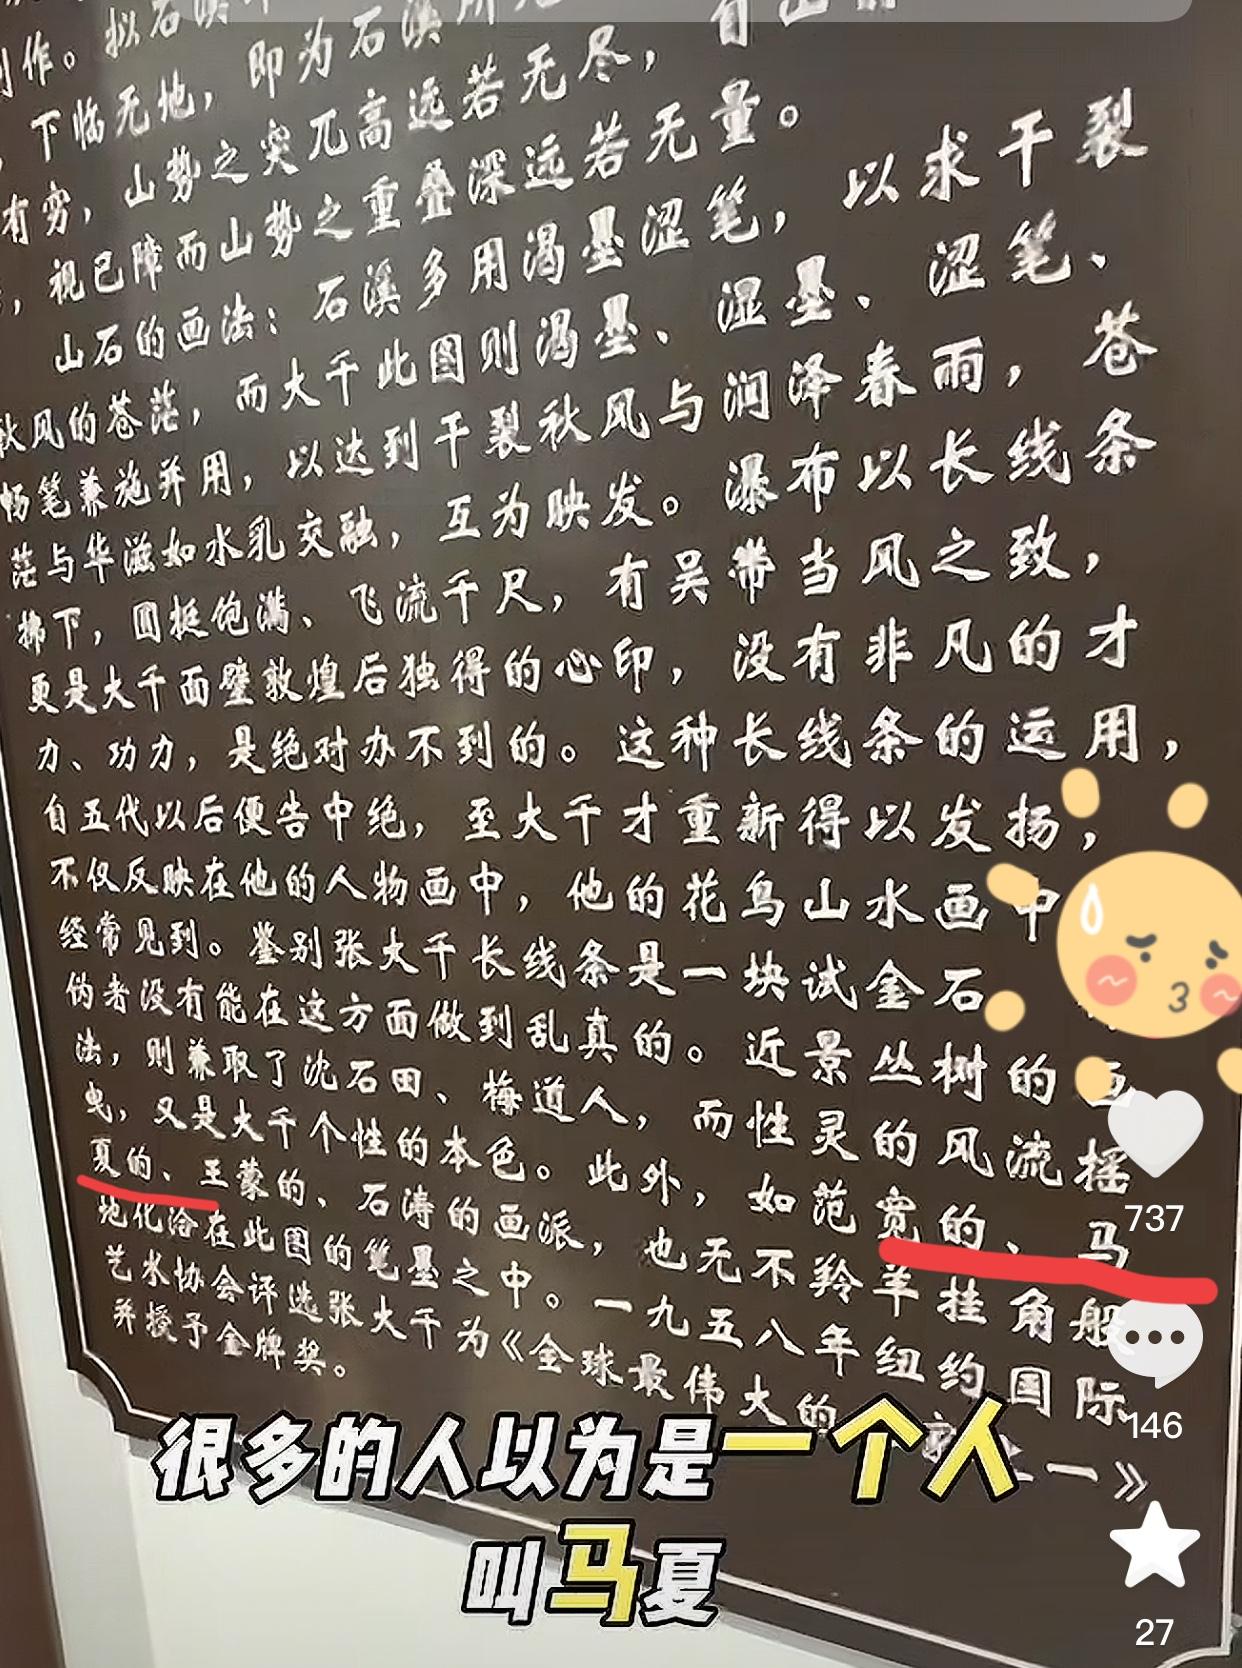 下临无地，即为石溪
有穷，山势之突兀高远若无尽，自
视已障而山势之重叠深远若无量。
山石的画法：石溪多用渴墨涩笔，以求干裂
秋风的苍茫，而大千此图则渴墨、湿墨、涩笔、
畅笔兼施并用，以达到干裂秋风与润泽春雨，苍
茫与华滋如水乳交融，互为映发。瀑布以长线条
拂下，圆挺饱满、飞流千尺，有吴带当风之致，
更是大千面壁敦煌后独得的心印，没有非凡的才
力、功力，是绝对办不到的。这种长线条的运用，
自五代以后便告中绝，至大千才重新得以发扬，
不仅反映在他的人物画中，他的花鸟山水画中
经常见到。鉴别张大千长线条是一块试金石
伪者没有能在这方面做到乱真的。近景丛树的画
法，则兼取了沈石田、梅道人，而性灵的风流摇
曳，又是大千个性的本色。此外，如范宽的、马
夏的、王蒙的、石涛的画派，也无不羚羊挂角般
地化洽在此图的笔墨之中。一九五八年纽约国际
艺术协会评选张大千为《全球最伟大的
一》
并授予金牌奖。
737
146
27
很多的人以为是一个人
叫马夏